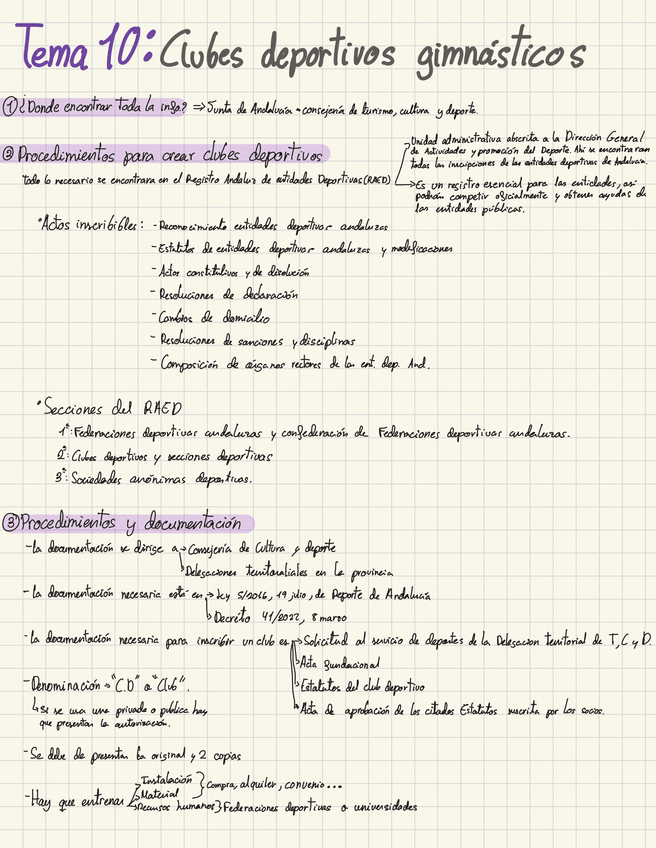 Tema 10: Clubes deportivos gimnásticos
① ¿Donde encontrar toda la info? ⇒ Junta de Andalucía - consejería de turismo, cultura y deporte.
② Procedimientos para crear clubes deportivos
todo lo necesario se encontrara en el Registro Andaluz de entidades Deportivas (RAED)
→ Unidad administrativa abscrita a la Dirección General
de Actividades y promoción del Deporte. Ahi se encontraran
todas las inscripciones de las entidades deportivas de Andalucía.
→ Es un registro esencial para las entidades, así
podrán competir oficialmente y obtener ayudas de
las entidades públicas.
• Actos inscribibles: - Reconocimiento entidades deportivas andaluzas
- Estatutos de entidades deportivas andaluzas y modificaciones
- Actos constitutivos y de disolución
- Resoluciones de declaración
- Cambios de domicilio
- Resoluciones de sanciones y disciplinas
- Composición de órganos rectores de las ent. dep. And.
• Secciones del RAED
1ª: Federaciones deportivas andaluzas y confederación de Federaciones deportivas andaluzas.
2ª: Clubes deportivos y secciones deportivas
3ª: Sociedades anónimas deportivas.
③ Procedimientos y documentación
- la documentación se dirige a → Consejería de Cultura y deporte
→ Delegaciones territoraliales en la provincia
- la documentación necesaria está en → ley 5/2016, 19 julio, de Deporte de Andalucía
→ Decreto 41/2022, 8 marzo
- la documentación necesaria para inscribir un club es → Solicitud al servicio de deportes de la Delegacion territorial de T, C y D.
→ Acta fundacional
→ Estatutos del club deportivo
→ Acta de aprobación de los citados Estatutos suscrita por los socios.
- Denominación → "C.D" o "Club".
↳ Si se usa una privada o publica hay
que presentar la autorización.
- Se debe de presentar la original y 2 copias
- Hay que entrenar → Instalación
→ Material } Compra, alquiler, convenio...
→ Recursos humanos } Federaciones deportivas o universidades